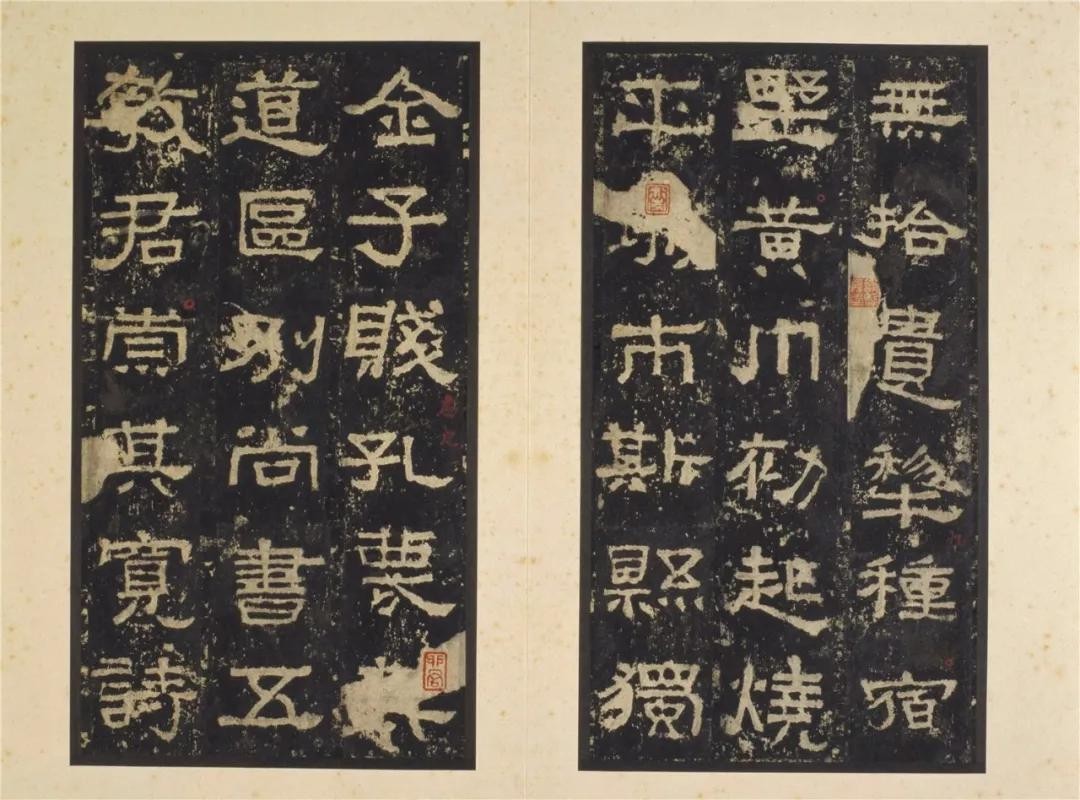 無拾遺犂種宿
墅黃巾初起燒
平市斯縣獨
全子賤孔蔑
道區別尚書五
教君崇其寬詩